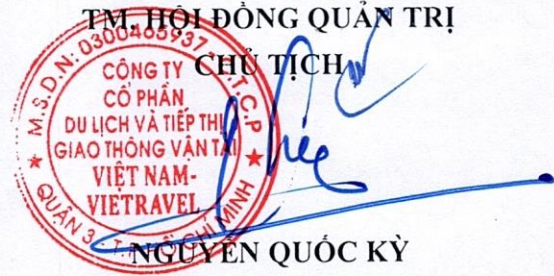 TM. HỘI ĐỒNG QUẢN TRỊ
CHỦ TỊCH
M.S.D.N: 0300465937 - C.T.C.P
CÔNG TY
CỔ PHẦN
DU LỊCH VÀ TIẾP THỊ
GIAO THÔNG VẬN TẢI
VIỆT NAM-
VIETRAVEL
QUẬN 3 - T. HỒ CHÍ MINH
NGUYỄN QUỐC KỲ